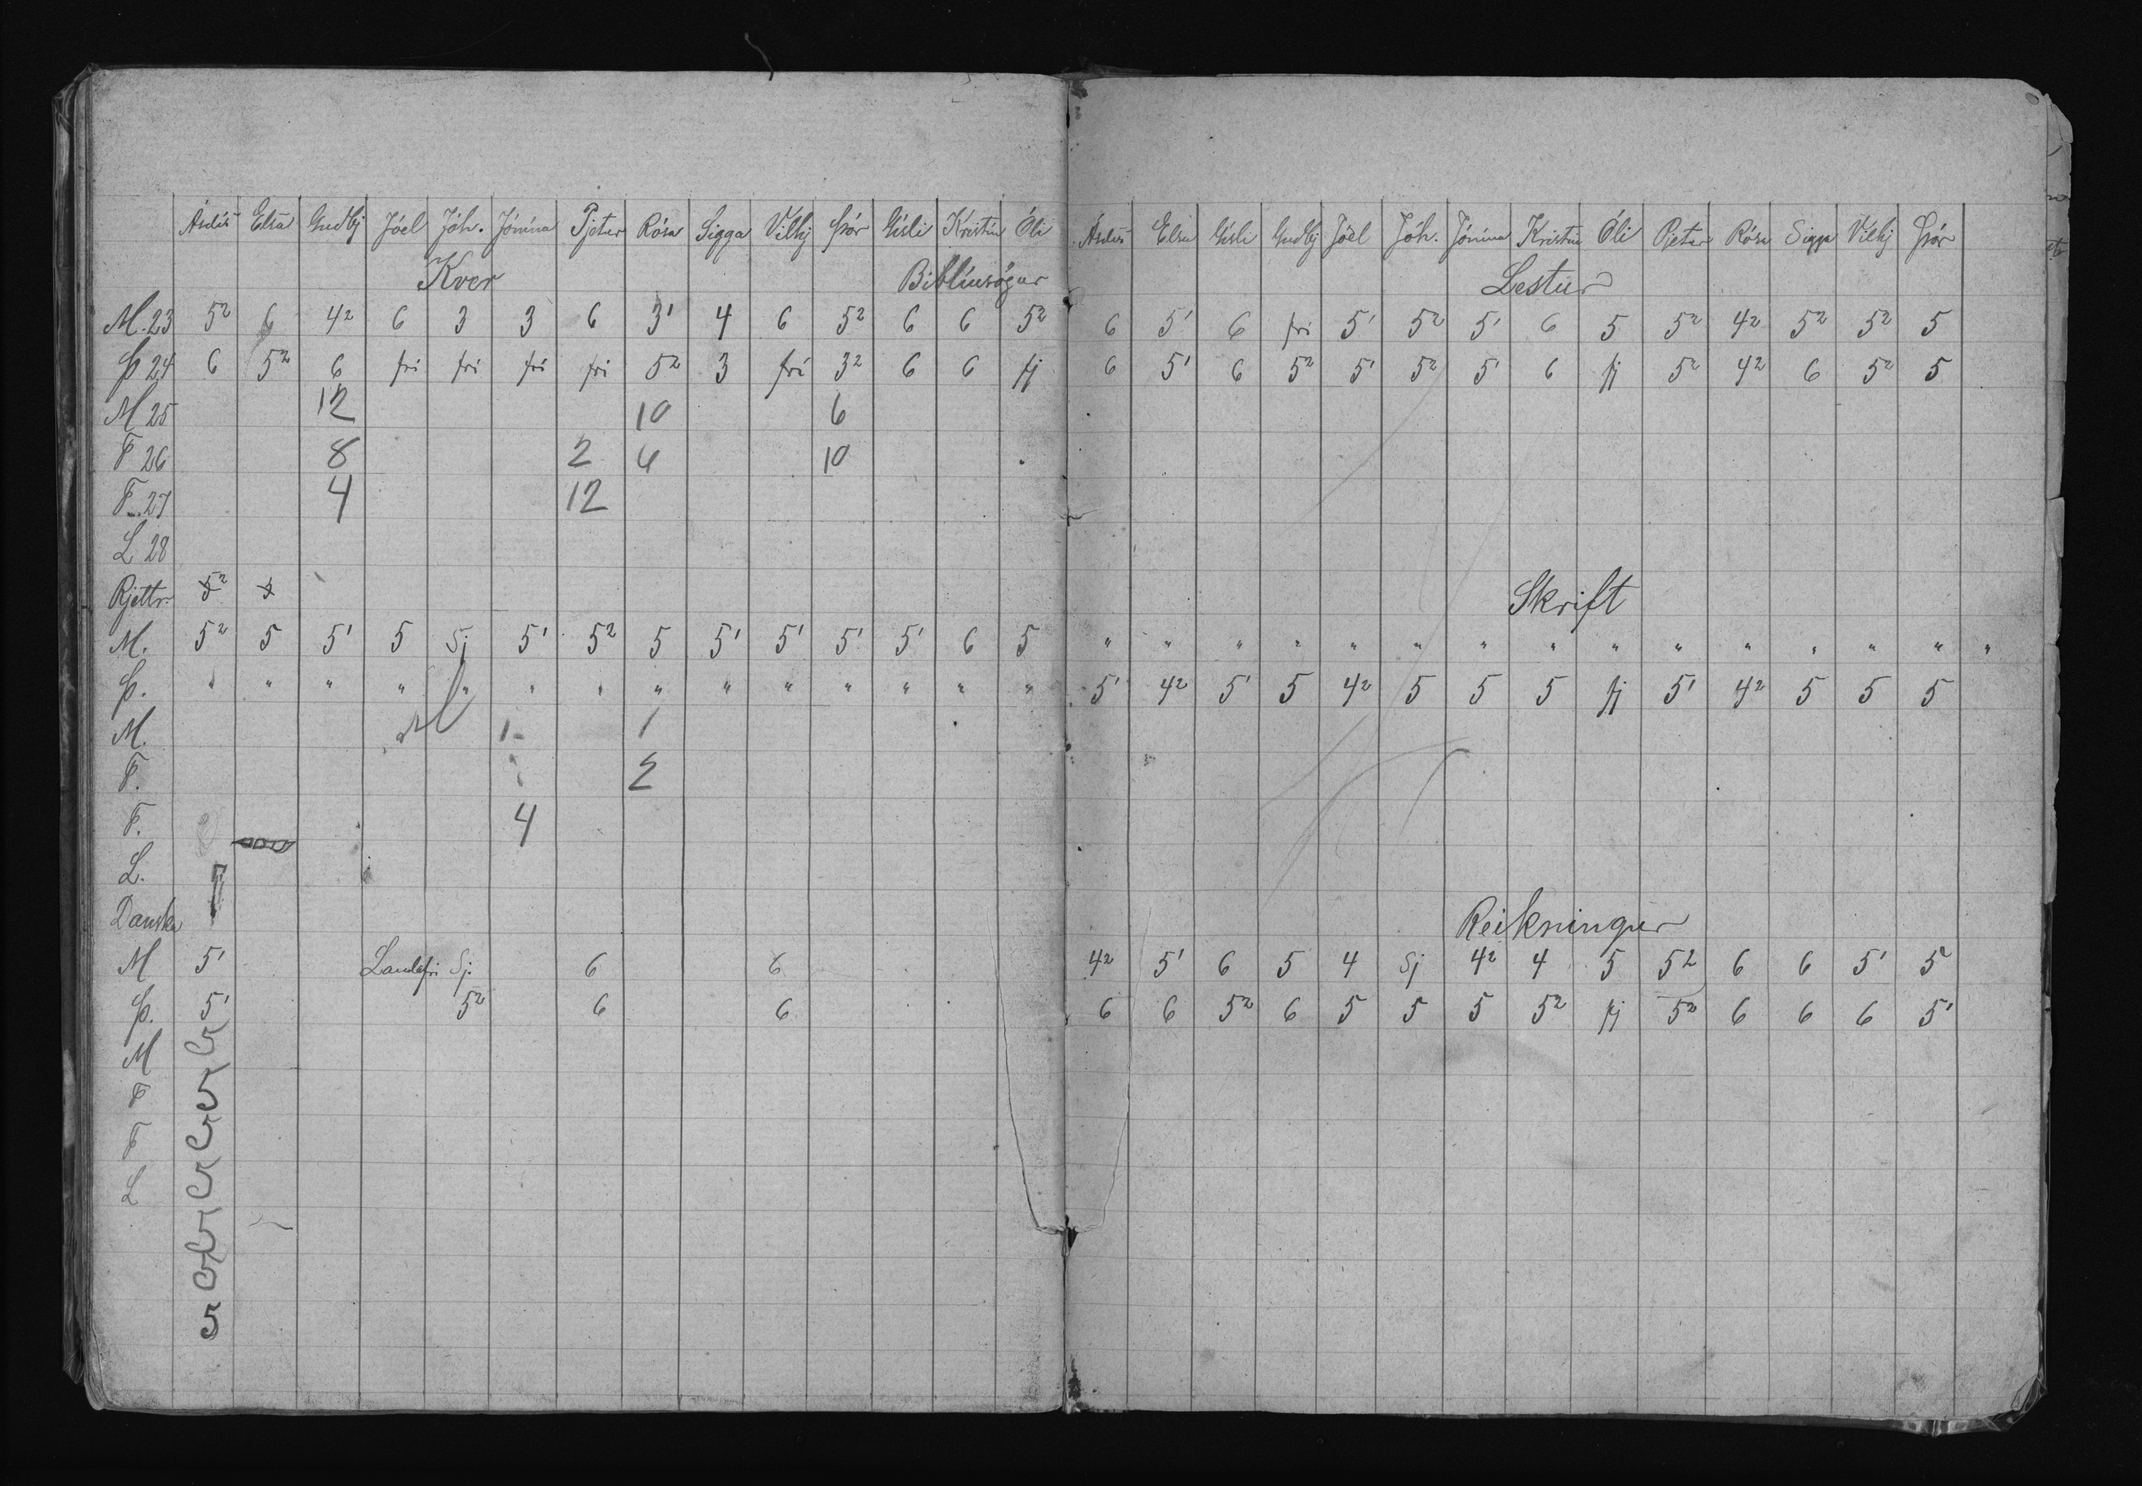 Ásdís Elsa Guðbj Jóel Jóh. Jónína Pjetur Rósa Sigga Vilhj Þór Gísli Kristín Óli
Kver Biblíusögur
M. 23 5² 6 4² 6 3 3 6 3¹ 4 6 5² 6 6 5²
Þ 24 6 5² 6 frí frí frí frí 5² 3 frí 3² 6 6 fj
M 25 12 10 6
F 26 8 2 6 10
F. 27 4 12
L 28
Rjettr. 5² 5
M. 5² 5 5¹ 5 Sj 5¹ 5² 5 5¹ 5¹ 5¹ 5¹ 6 5
Þ. " " " " " " " " " " " " " "
M. 1 1
F. 2
F. 4
L.
Danska
M 5¹ Landafr Sj. 6 6
Þ. 5¹ 5² 6 6
M
F
F
L
Ásdís Elsa Gísli Guðbj Jóel Jóh. Jónína Kristín Óli Pjetur Rósa Sigga Vilhj Þór
Lestur
6 5¹ 6 frí 5¹ 5² 5¹ 6 5 5² 4² 5² 5² 5
6 5¹ 6 5² 5¹ 5² 5¹ 6 fj 5² 4² 6 5² 5
Skrift
" " " " " " " " " " " " " " "
5¹ 4² 5¹ 5 4² 5 5 5 fj 5¹ 4² 5 5 5
Reikningur
4² 5¹ 6 5 4 Sj 4² 4 5 5² 6 6 5¹ 5
6 6 5² 6 5 5 5 5² fj 5² 6 6 6 5¹